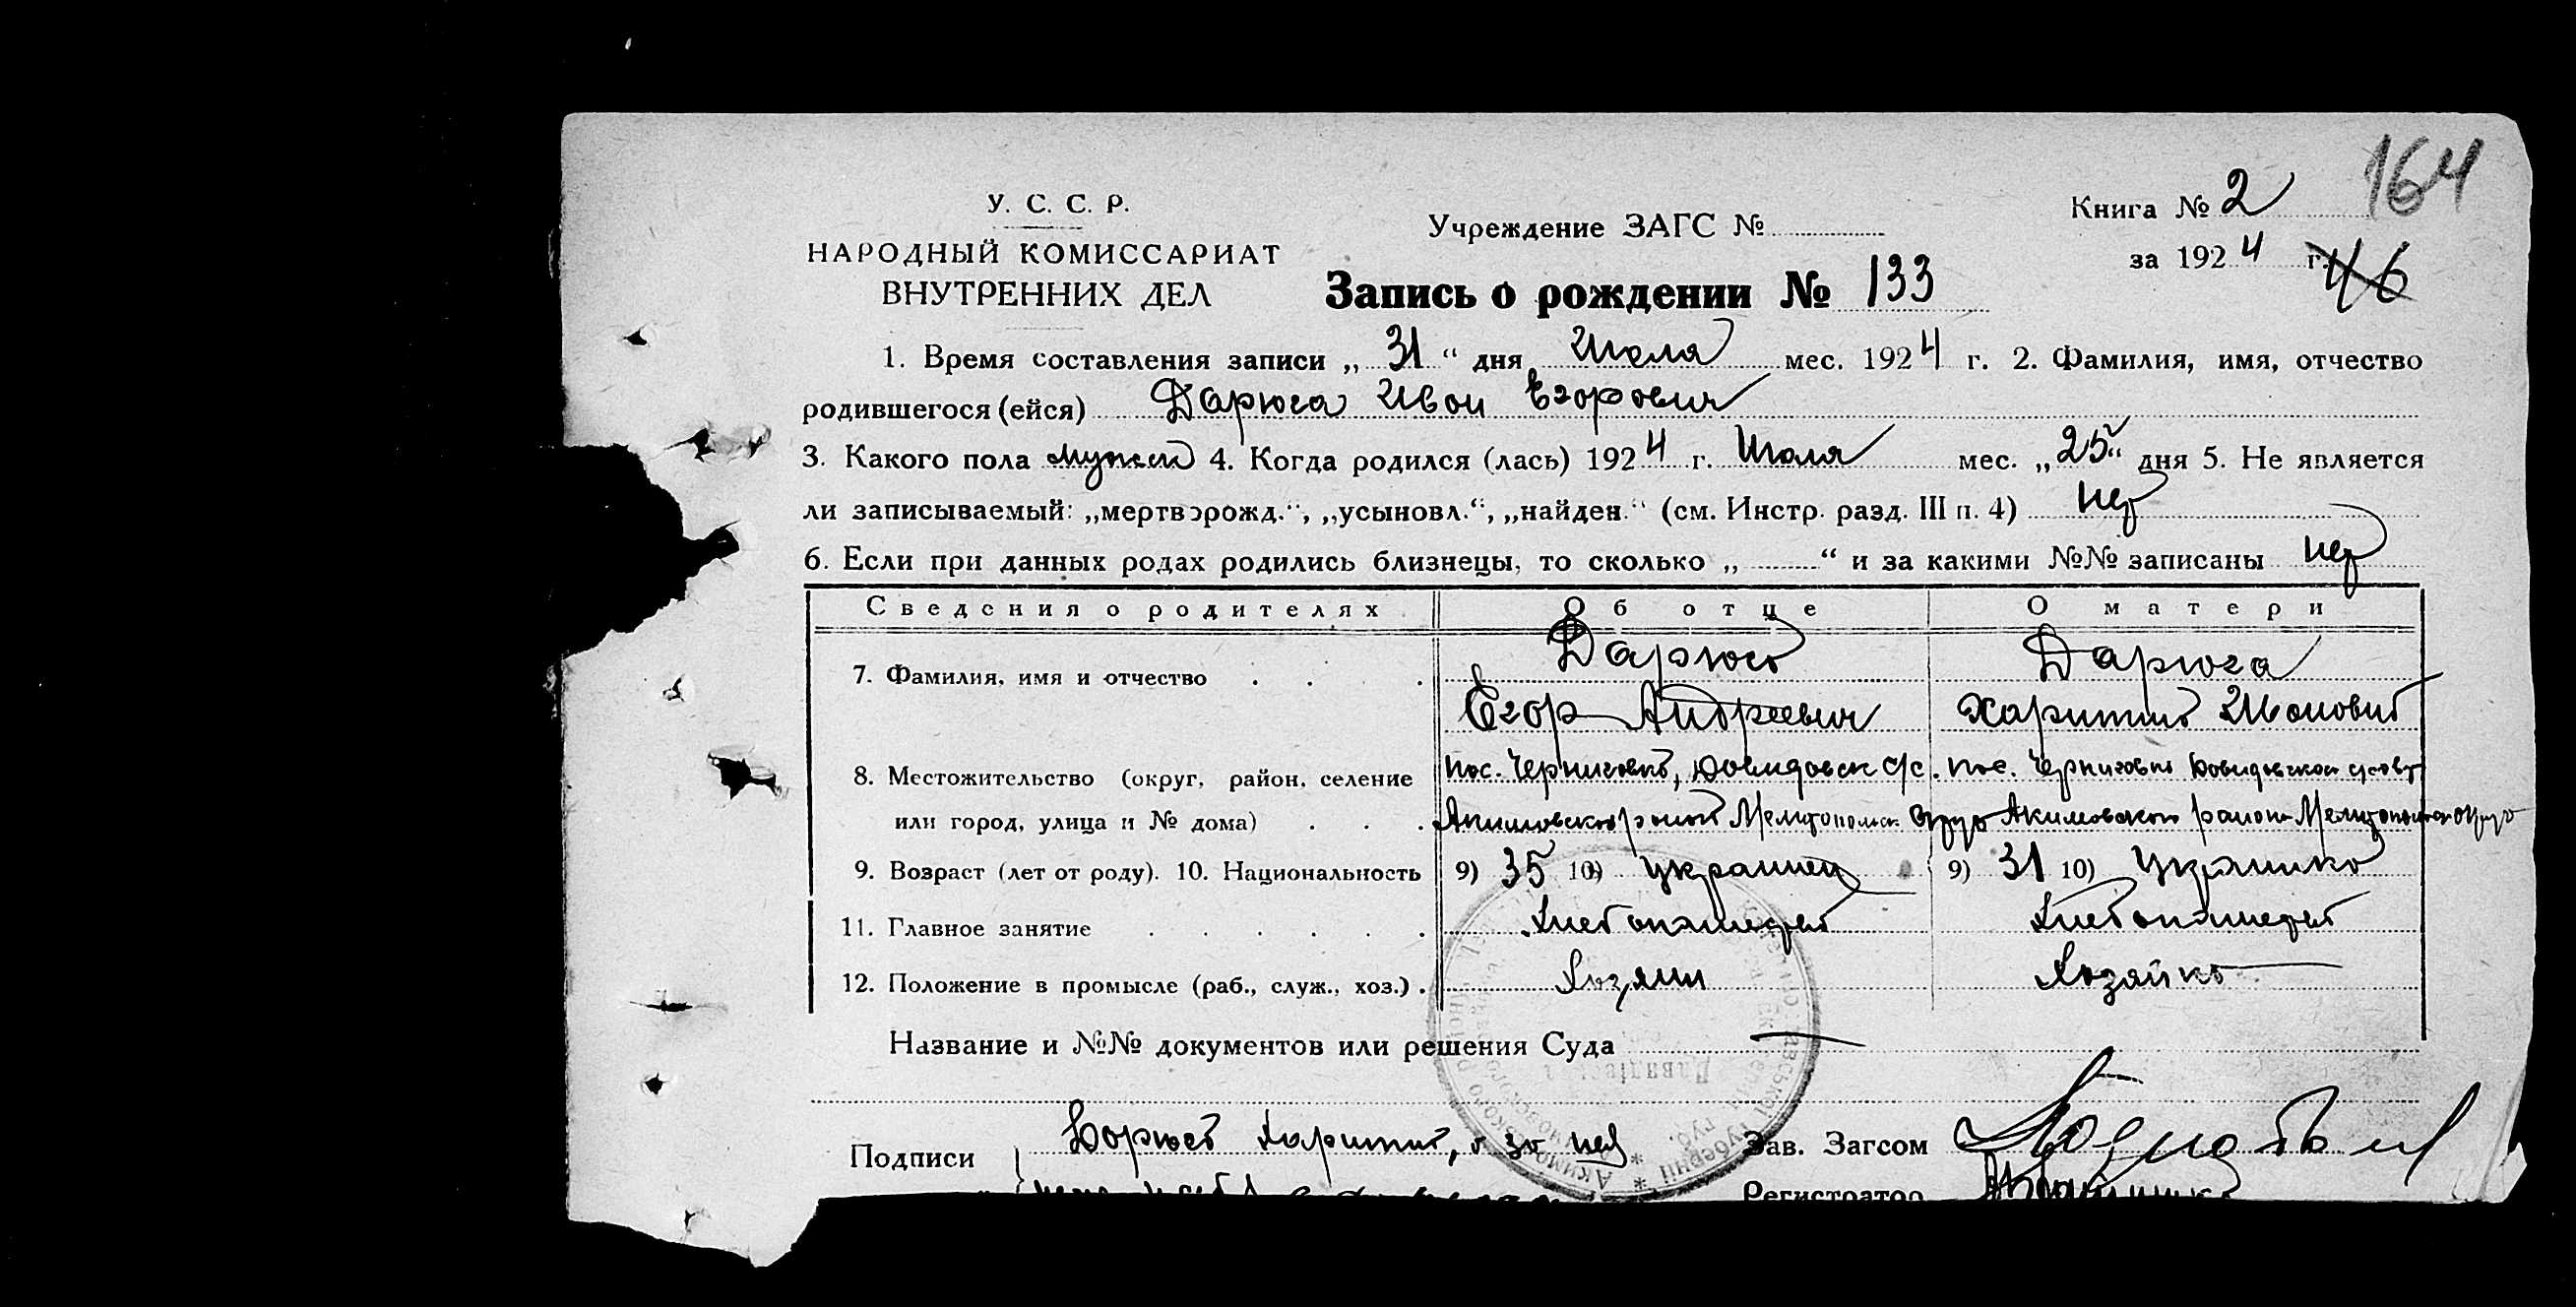 164
У. С. С. Р.
НАРОДНЫЙ КОМИССАРИАТ
ВНУТРЕННИХ ДЕЛ
Учреждение ЗАГС №
Книга № 2
за 1924 г.
46
Запись о рождении № 133
1. Время составления записи „31“ дня Июля мес. 1924 г. 2. Фамилия, имя, отчество
родившегося (ейся) Дарюга Иван Егорович
3. Какого пола мужск 4. Когда родился (лась) 1924 г. Июля мес. „25“ дня 5. Не является
ли записываемый: „мертворожд.“, „усыновл.“, „найден.“ (см. Инстр. разд. III п. 4) нет
6. Если при данных родах родились близнецы, то сколько „ “ и за какими №№ записаны нет
Сведения о родителях Об отце О матери
7. Фамилия, имя и отчество Дарюга Дарюга
Егор Андреевич Харитина Ивановна
8. Местожительство (округ, район, селение пос. Черниговка, Довидовск с/с. пос. Черниговка Довидовского
или город, улица и № дома) Акимовского района Мелитопольск округа Акимовского района Мелитопольского округа
9. Возраст (лет от роду). 10. Национальность 9) 35 10) украинец 9) 31 10) Украинка
11. Главное занятие Хлебопашество Хлебопашество
12. Положение в промысле (раб., служ., хоз.) Хозяин Хозяйка
Название и №№ документов или решения Суда —
Подписи Дарюга Харитина, а за нея
Зав. Загсом
Регистратор